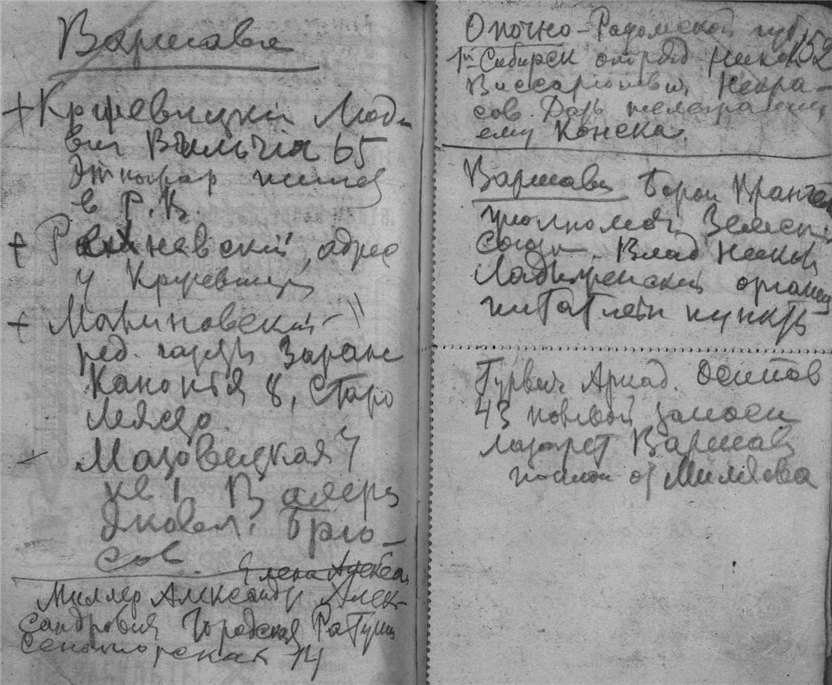 Варшава
+ Кржевицки Люд-
виг Вильчiя 65
Этнограф
в Р. В
+ адрес
у Кржевицк
+ Мариновский
ред. газеты Заране
Канонiя 8, Старо
Място.
Мазовецкая 4
кв 1. Валерiй
Яковл. Брю-
сов.
Елена Алекса
Миллер Александр Алек-
сандрович Городская Ратуша
Сенаторская 14
Опочно-Радомской губ. 152
1й Сибирск отряд Никол
Виссарионович Некра-
сов. Дать телеграмму
ему Конска.
Варшава барон Врангель
уполномоч. Земск.
Союза. Влад
организ
питат пункты
Гурвич Аркад. Осипов
43 полевой запасн
лазарет Варшава
от Милякова